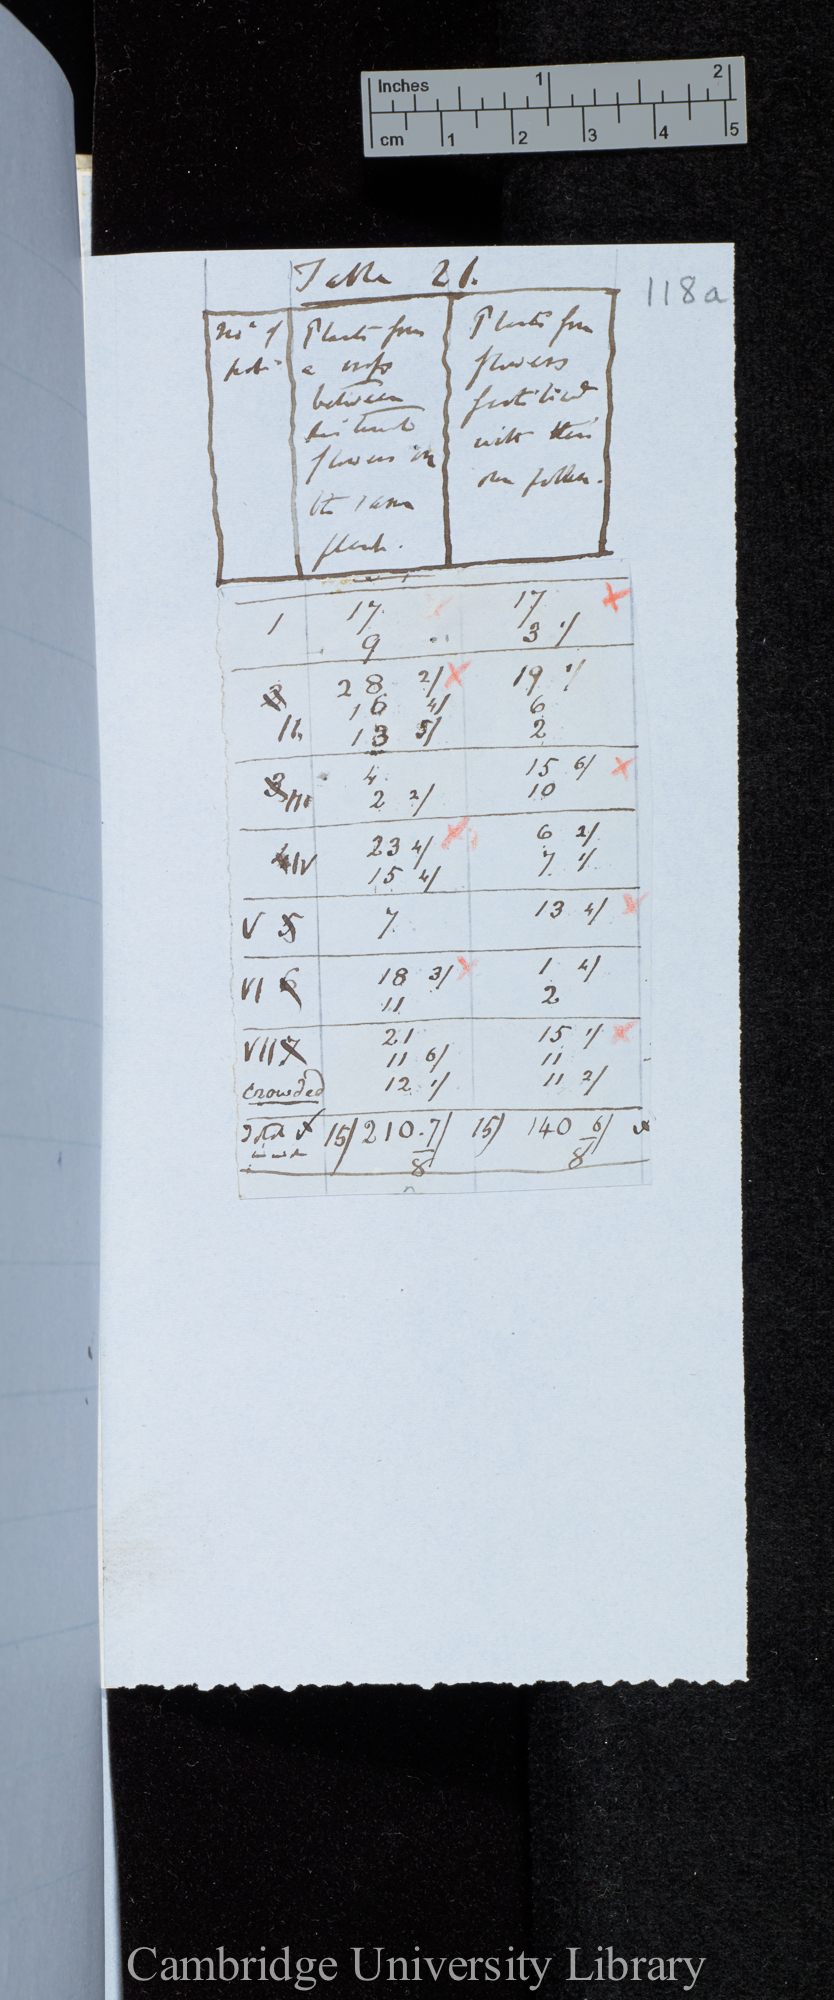 Inches 1 2
cm 1 2 3 4 5
118a
Table 21.
Nos of
pots
Plants from
a cross
between
distinct
flowers on
the same
plant.
Plants from
flowers
fertilised
with their
own pollen.
1 17 17 x
9 3 1/
3 28 2/ x 19 1/
16 4/ 6
II. 13 5/ 2
3 III 4 15 6/ x
2 2/ 10
4 IV 23 4/ x 6 2/
15 4/ 7 1/
V 5 7 13 4/ x
VI 6 18 3/ x 1 4/
11 2
VII 7 21 15 1/ x
11 6/ 11
Crowded 12 1/ 11 2/
Total 15/ 210.7/8 15) 140 6/8
Cambridge University Library